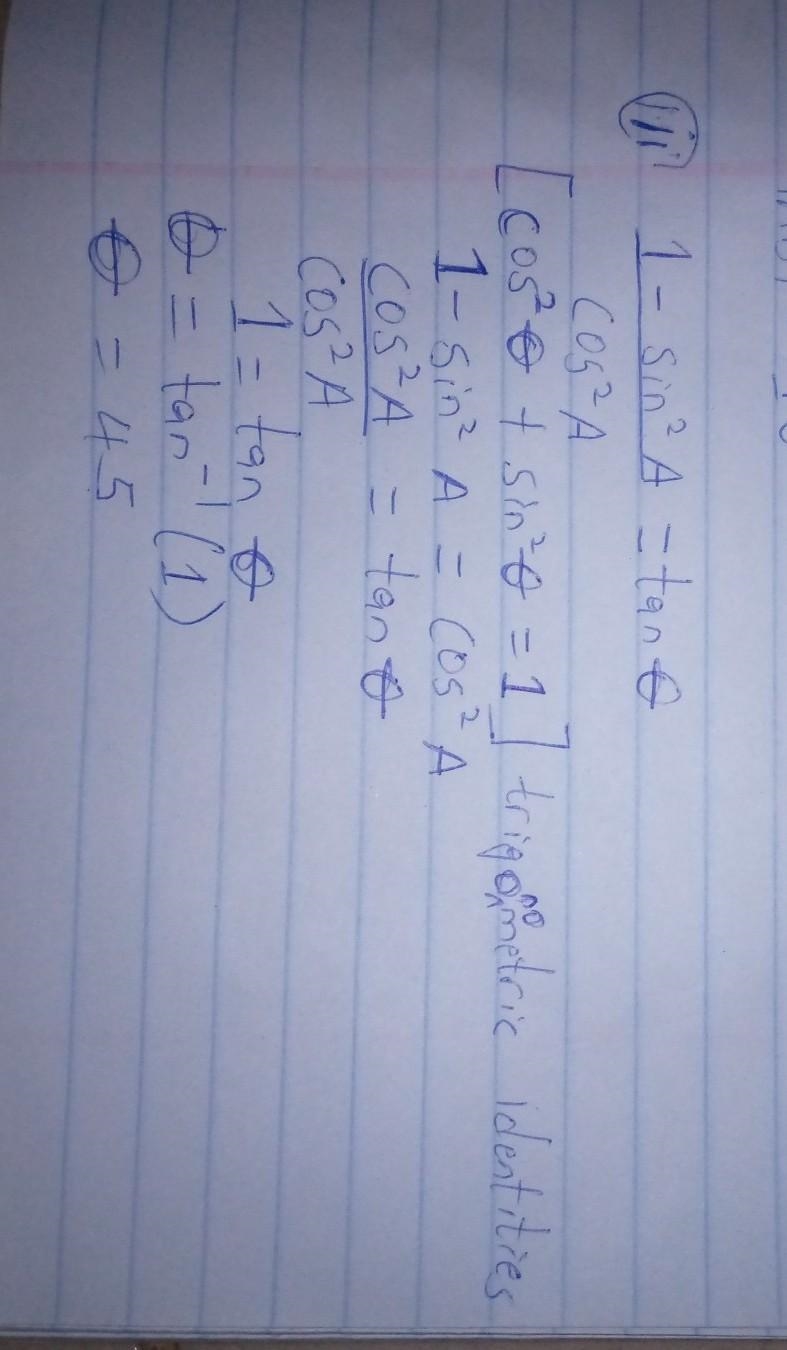 iii 1 - sin² A = tan θ
cos² A
[cos² θ + sin² θ = 1] trigonometric identities
1 - sin² A = cos² A
cos² A = tan θ
cos² A
1 = tan θ
θ = tan⁻¹ (1)
θ = 45